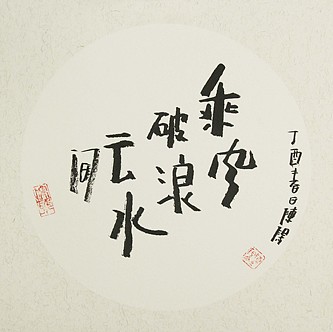 乘风
破浪
云水
間
丁酉春日陳